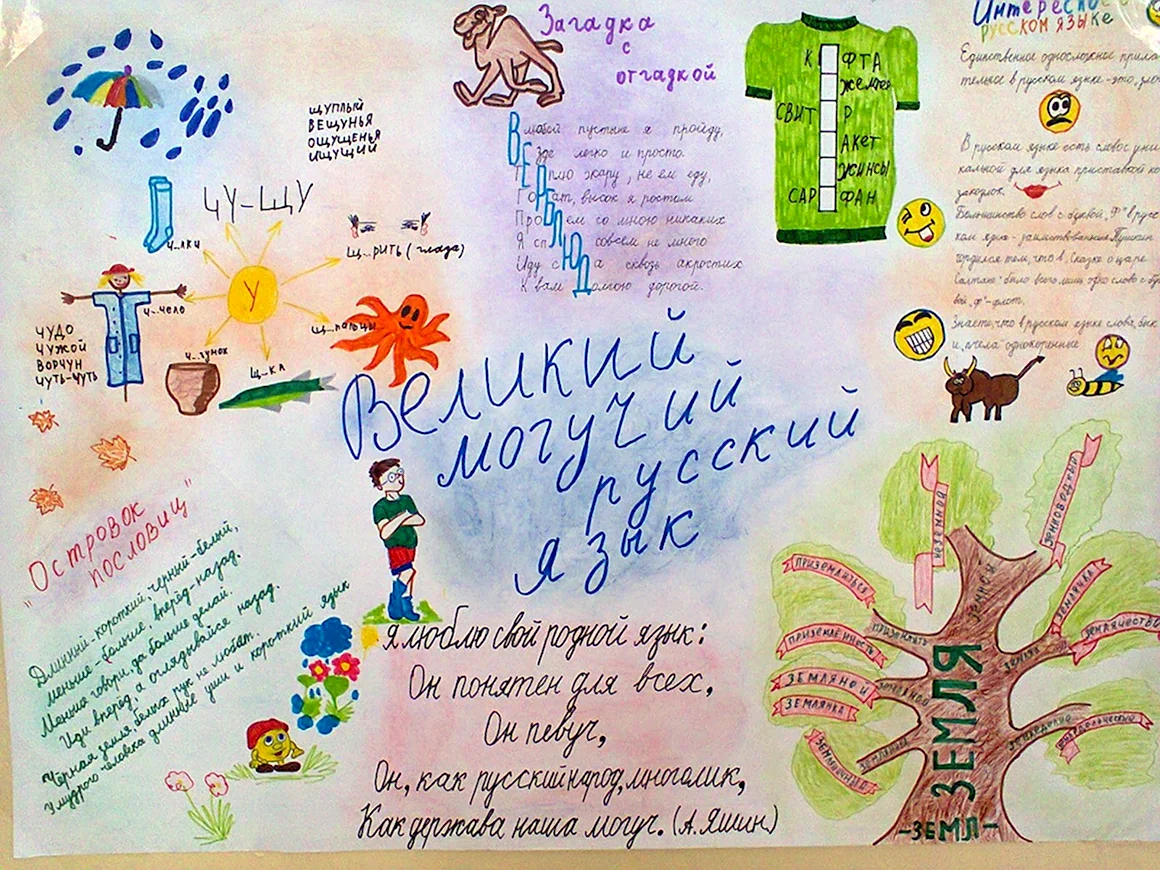 Загадка
с
отгадкой
Влюбой пустыне я пройду,
Везде легко и просто.
Терплю жару, не ем еду,
Горбат, высок я ростом
Проблем со мною никаких
Я сплю совсем не много
Иду сюда сквозь акростих
К вам долгою дорогой.
К ФТА
жемпер
СВИТ Р
АКЕТ
ЖИНСЫ
САР ФАН
Интересное о
русском языке
Единственное односложное прила-
тельное в русском языке-это, зло
В русском языке есть слово с уни
кальной для языка приставкой ко
закоулок.
Большинство слов с буквой „Ф" в русс
ком языке - заимствованные. Пушкин
гордился тем, что в „Сказке о царе
Салтане" было всего лишь одно слово с бук
вой „ф"-флот.
Знаете, что в русском языке слова „бык
и „пчела" однокоренные
ЩУПЛЫЙ
ВЕЩУНЬЯ
ОЩУЩЕНЬЯ
ИЩУЩИЙ
ЧУ-ЩУ
Ч...ЛКИ
Щ...РИТЬ (глаза)
У
Ч...ЧЕЛО
Щ...ПАЛЬЦЫ
Ч...ГУНОК
Щ...КА
ЧУДО
ЧУЖОЙ
ВОРЧУН
ЧУТЬ-ЧУТЬ
Великий
могучий
русский
язык
"Островок
пословиц"
Длинный-короткий, черный-белый,
меньше-больше, вперёд-назад.
Меньше говори, да больше делай.
Иди вперёд, а оглядывайся назад.
Чёрная земля белых рук не любит.
У мудрого человека длинные уши и короткий язык
Я люблю свой родной язык:
Он понятен для всех,
Он певуч,
Он, как русский народ, многолик,
Как держава наша могуч. (А. Яшин)
НАЗЕМНОЙ
ЗЕМНОВОДНЫЙ
ЗЕМНОЙ
ПРИЗЕМЛИТЬСЯ
ПРИЗЕМЛЯТЬ
ПРИЗЕМЛЕННОСТЬ
ЗЕМЛЯЧКА
ЗЕМЛЯЧЕСТВО
ЗЕМЛЯК
ЗЕМЛЯНОЙ
ЗЕМЛЯНОЙ
ЗЕМЛЯНКА
ЗЕМЛЕДЕЛИЕ
ЗЕМЛЯ
-ЗЕМЛ-